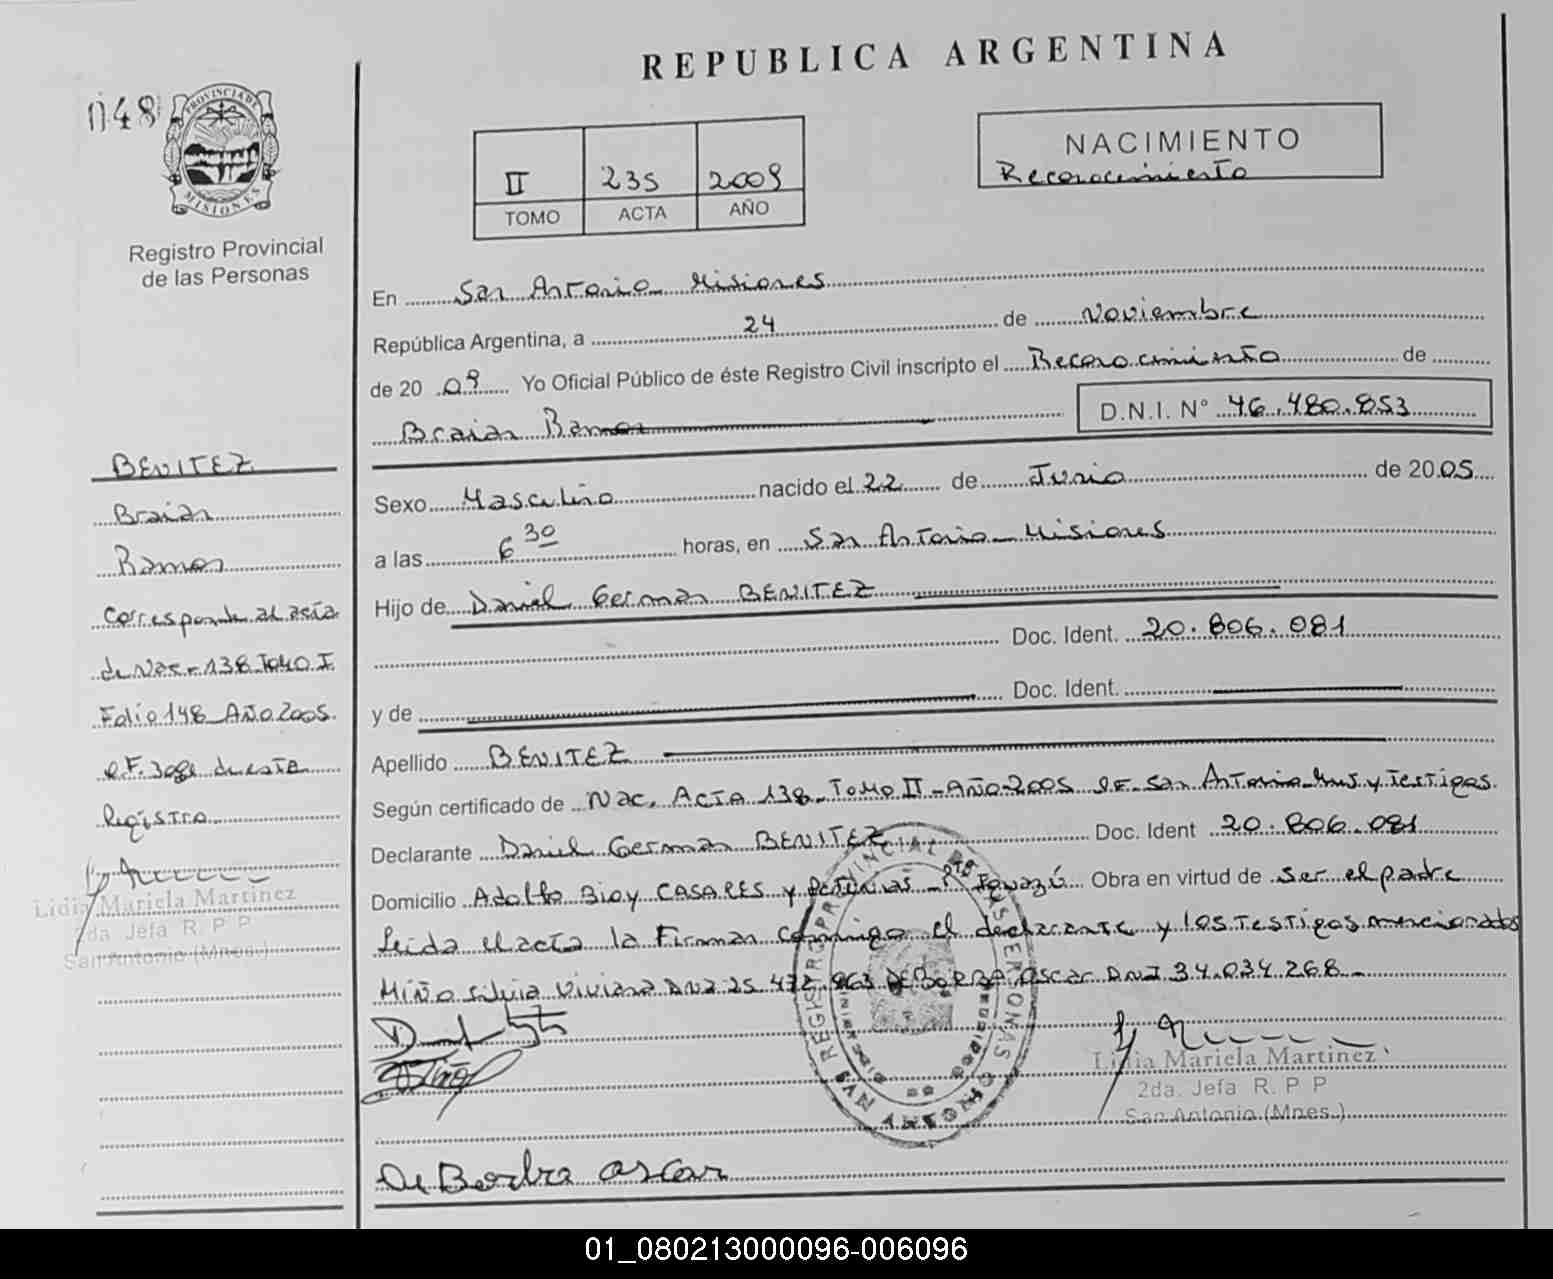 REPUBLICA ARGENTINA
048
PROVINCIA DE
MISIONES
Registro Provincial
de las Personas
II 235 2009
TOMO ACTA AÑO
NACIMIENTO
Reconocimiento
En San Antonio Misiones
República Argentina, a 24 de Noviembre
de 20 09 Yo Oficial Público de éste Registro Civil inscripto el Reconocimiento de
Braian Ramon D.N.I. N° 46.480.853
Sexo Masculino nacido el 22 de Junio de 2005
a las 6 30 horas, en San Antonio Misiones
Hijo de Daniel German BENITEZ
Doc. Ident. 20.806.081
y de Doc. Ident.
Apellido BENITEZ
Según certificado de Nac. ACTA 138 Tomo II - AÑO 2005 San Antonio y Testigos
Declarante Daniel German BENITEZ Doc. Ident 20.806.081
Domicilio Adolfo Bioy CASARES y Petunias - Pto Iguazú Obra en virtud de ser el padre
Leida el acta la Firman conmigo el declarante y los Testigos mencionados
Miño Silvia Viviana DNI 25.472.963 DE BORBA Oscar DNI 34.034.268
De Borba oscar
Lidia Mariela Martinez
2da. Jefa R. P P
San Antonio (Mnes.)
REGISTRO PROVINCIAL DE LAS PERSONAS
BENITEZ
Braian
Ramon
Corresponde al acta
de Nac - 138 Tomo I
Folio 148 AÑO 2005
de esta
Registro
Lidia Mariela Martinez
2da Jefa R. P P
San Antonio (Mnes.)
01_080213000096-006096